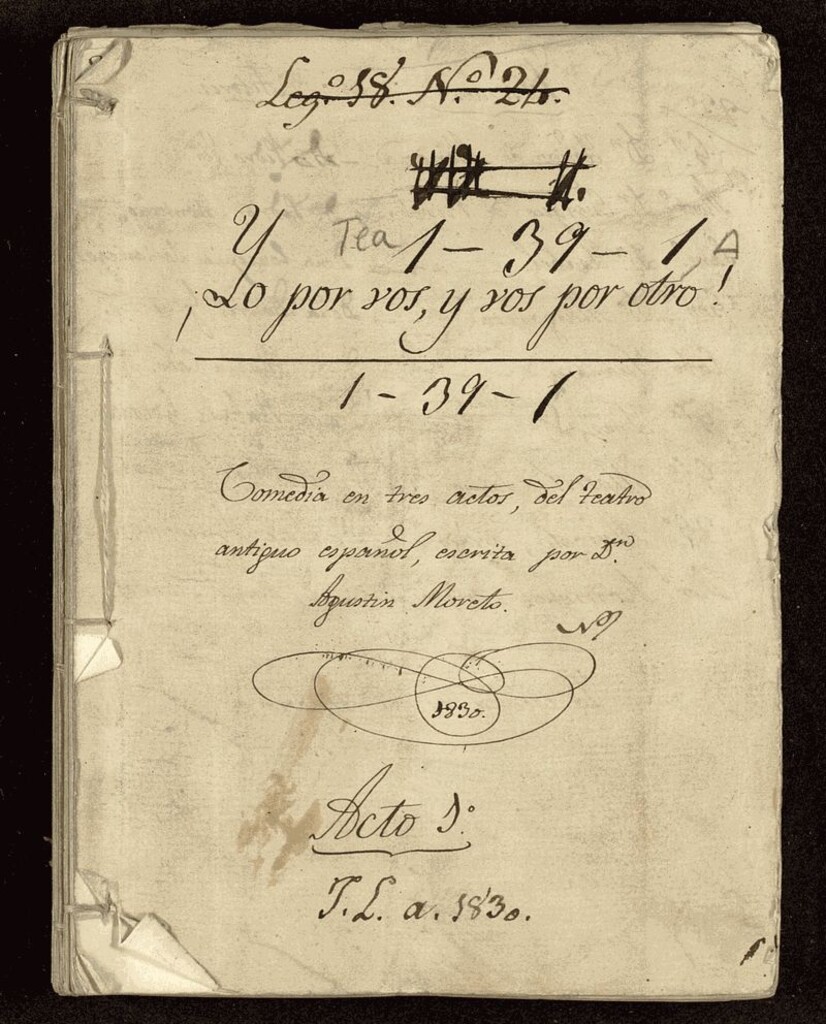 Leg.º 18. N.º 24.
Y Tea 1 - 39 - 1, A
¡Lo por vos, y vos por otro!
1 - 39 - 1
Comedia en tres actos, del teatro
antiguo español, escrita por D.n
Agustin Moreto.
1830.
Acto 1.º
T. L. a. 1830.